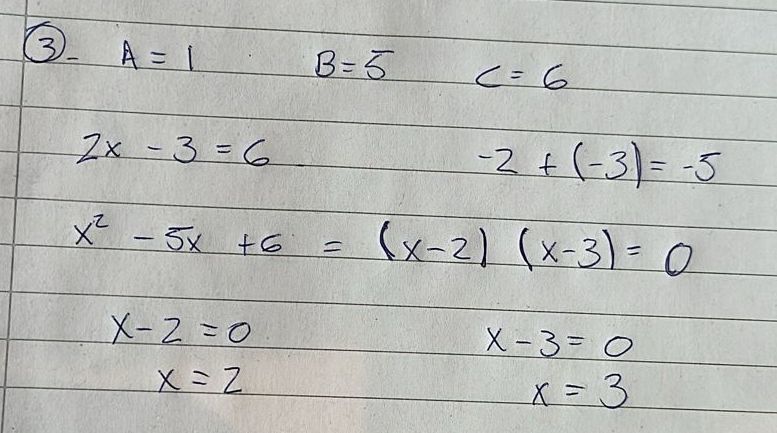 ③. A = 1 B = 5 C = 6
2x - 3 = 6 -2 + (-3) = -5
x² - 5x + 6 = (x-2) (x-3) = 0
x - 2 = 0 x - 3 = 0
x = 2 x = 3